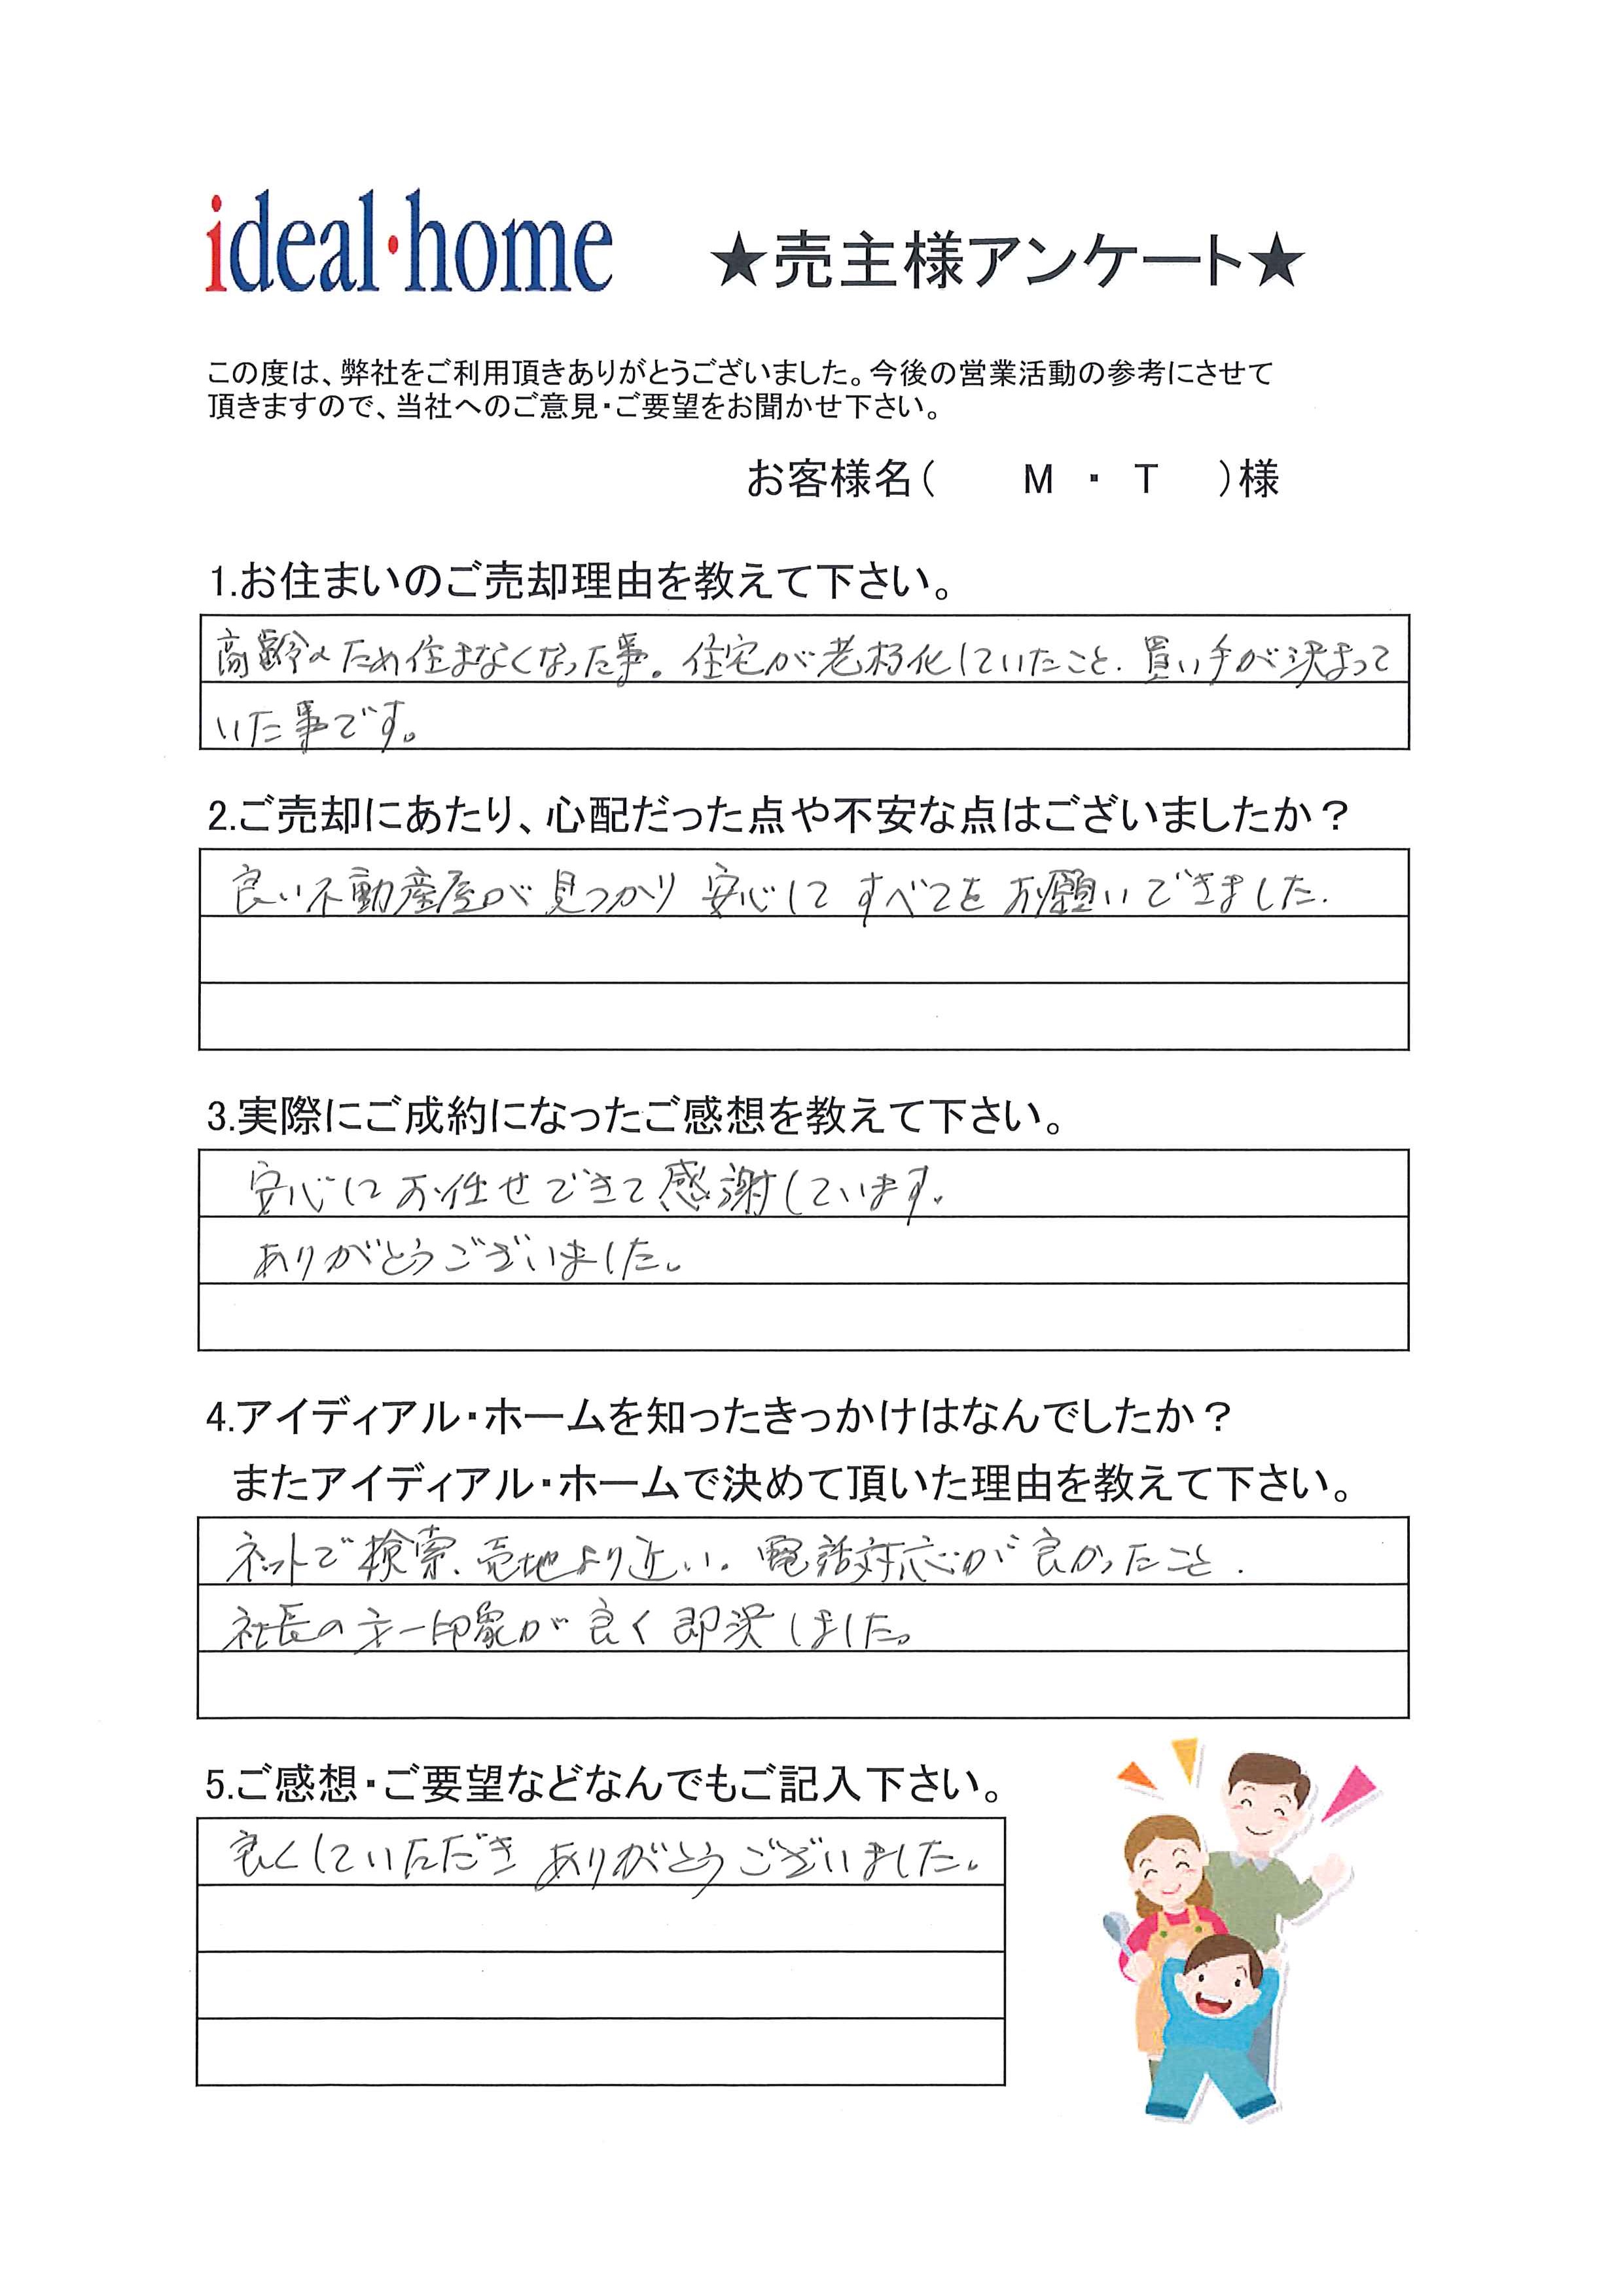 ideal・home
★売主様アンケート★
この度は、弊社をご利用頂きありがとうございました。今後の営業活動の参考にさせて
頂きますので、当社へのご意見・ご要望をお聞かせ下さい。
お客様名( M ・ T )様
1.お住まいのご売却理由を教えて下さい。
高齢のため住まなくなった事。住宅が老朽化していたこと.買い手が決まって
いた事です。
2.ご売却にあたり、心配だった点や不安な点はございましたか？
良い不動産屋が見つかり 安心して すべてを お願いできました.
3.実際にご成約になったご感想を教えて下さい。
安心して お任せできて感謝しています.
ありがとうございました。
4.アイディアル・ホームを知ったきっかけはなんでしたか？
またアイディアル・ホームで決めて頂いた理由を教えて下さい。
ネットで検索、売地より近い。電話対応が良かったこと.
社長の才一印象が良く即決しました。
5.ご感想・ご要望などなんでもご記入下さい。
良くしていただき ありがとうございました。